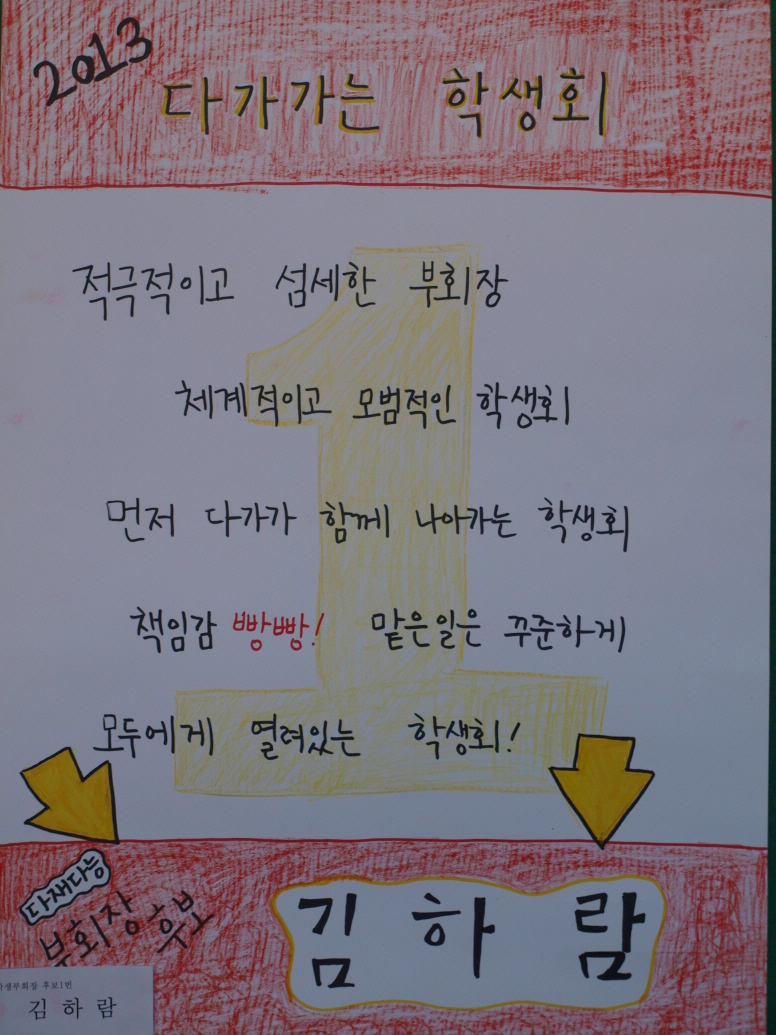 2013
다가가는 학생회
적극적이고 섬세한 부회장
체계적이고 모범적인 학생회
먼저 다가가 함께 나아가는 학생회
책임감 빵빵! 맡은일은 꾸준하게
모두에게 열려있는 학생회!
다재다능
부회장 후보
김하람
학생부회장 후보1번
김 하 람
1